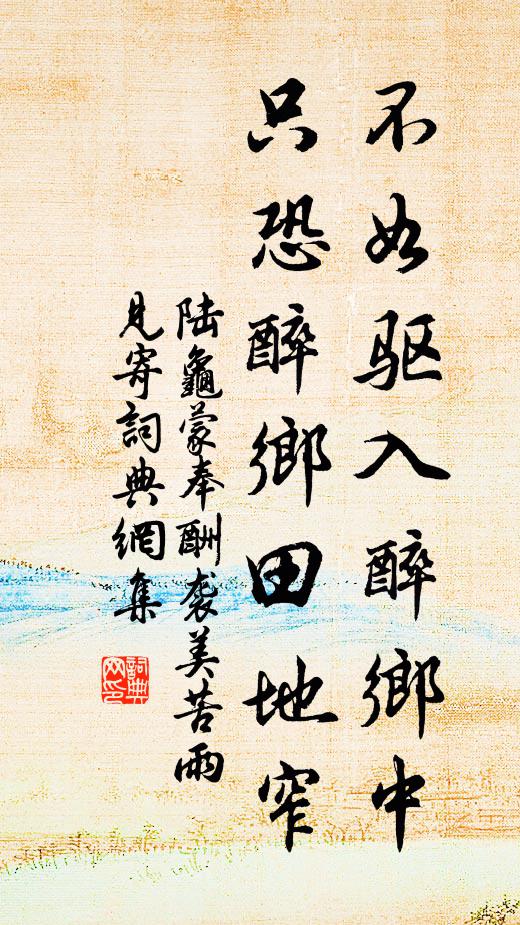 不如驱入醉鄉中
只恐醉鄉田地窄
陆龜蒙奉酬袭美苦雨
見寄詞典網集
詞典网印